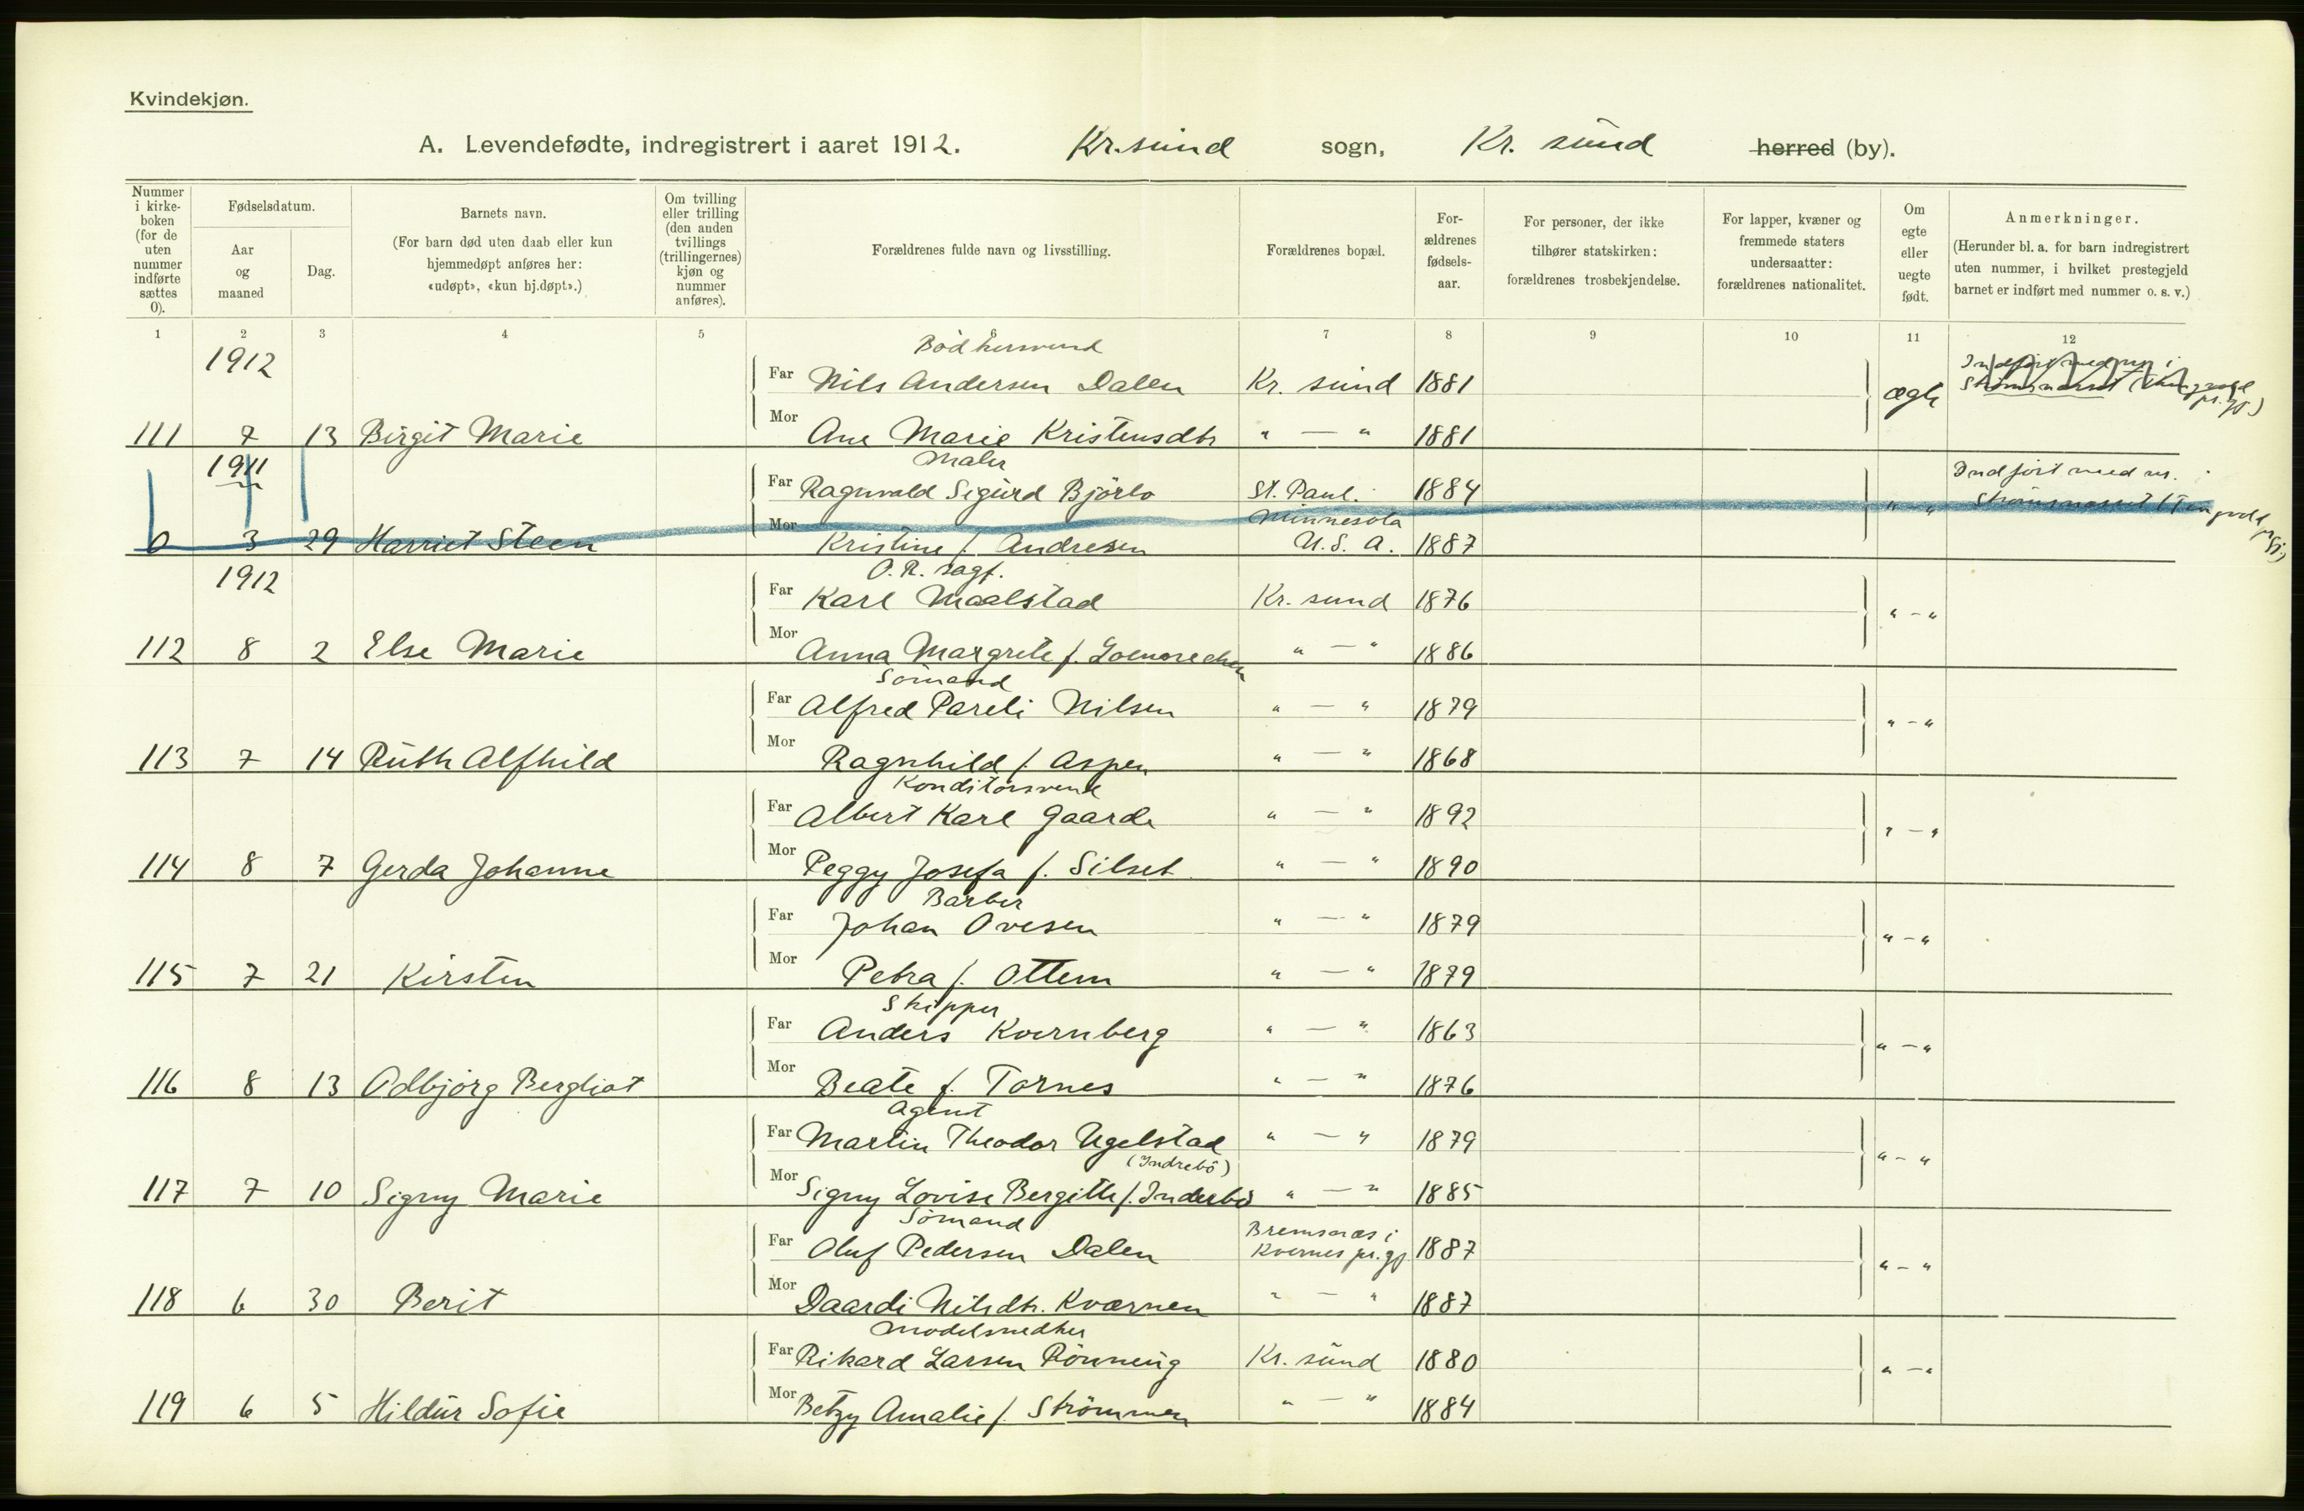 Kvindekjøn.
A. Levendefødte, indregistrert i aaret 1912. Kr.sund sogn, Kr. sund herred (by).
Nummer i kirke-boken (for de uten nummer indførte sættes 0).
Fødselsdatum.
Aar og maaned
Dag.
Barnets navn.
(For barn død uten daab eller kun hjemmedøpt anføres her: «udøpt», «kun hj.døpt».)
Om tvilling eller trilling (den anden tvillings (trillingernes) kjøn og nummer anføres).
Forældrenes fulde navn og livsstilling.
Forældrenes bopæl.
For-ældrenes fødsels-aar.
For personer, der ikke tilhører statskirken: forældrenes trosbekjendelse.
For lapper, kvæner og fremmede staters undersaatter: forældrenes nationalitet.
Om egte eller uegte født.
Anmerkninger.
(Herunder bl. a. for barn indregistrert uten nummer, i hvilket prestegjeld barnet er indført med nummer o. s. v.)
1 2 3 4 5 6 7 8 9 10 11 12
1912
Far Nils Andersen Dalen Kr. sund 1881
Indført med nr. i
ægte
111 7 13 Birgit Marie Mor Ane Marie Kristensdtr " — " 1881
1911 Maler
Far Ragnvald Sigurd Björlo St. Paul. 1884 " - " Indført med nr. i
Minnesota
0 3 29 Harriet Steen Mor Kristine f. Andresen U.S.A. 1887
1912 O.R. sagf.
Far Karl Maalstad Kr. sund 1876 " - "
112 8 2 Else Marie Mor Anna Margrete f. 1886
Sömand
Far Alfred Pareli Nilsen " — " 1879 " - "
113 7 14 Ruth Alfhild Mor Ragnhild f. Aspen " — " 1868
Konditorsvend
Far Albert Karl Gaarde " — " 1892 " - "
114 8 7 Gerda Johanne Mor Peggy Josefa f. Silset " — " 1890
Barber
Far Johan Ovesen " — " 1879 " - "
115 7 21 Kirsten Mor Petra f. Ottem " — " 1879
Skipper
Far Anders Kvernberg " — " 1863 " - "
116 8 13 Odbjörg Bergliot Mor Beate f. Tornes " — " 1876
Agent
Far Martin Theodor Ugelstad " — " 1879 " - "
(Indrebö)
117 7 10 Signy Marie Mor Signy Lovise Bergitte f. Inderbö " — " 1885
Sömand Bremsnæs i
Far Oluf Pedersen Dalen Kvernes pr.gj. 1887 " - "
118 6 30 Berit Mor Daardi Nilsdtr. Kværnen " — " 1887
Modelsnedker
Far Rikard Larsen Rönning Kr. sund 1880 " - "
119 6 5 Hildur Sofie Mor Betzy Amalie f. Strömmen " — " 1884